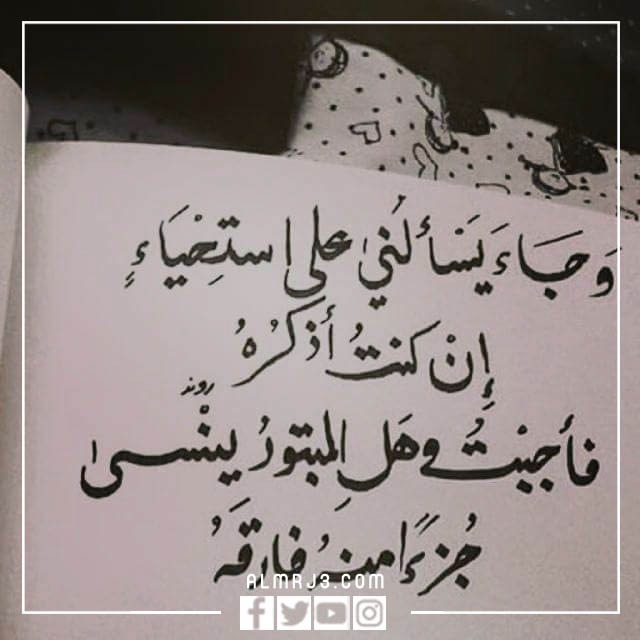 وَجَاءَ يَسْألُنيٰ على اِستِحْيَاءٍ
إِنْ كنتُ أذكُرُهُ
روند
فأجبْتُ وهَلِ المبتورُ ينْسىٰ
جُزءًا منهُ فارقَهُ
ALMRJ3.COM